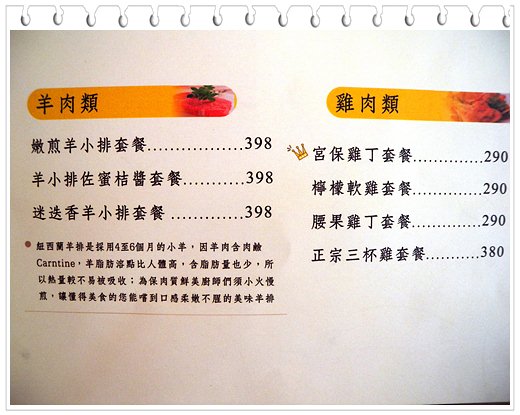 羊肉類
嫩煎羊小排套餐..............398
羊小排佐蜜桔醬套餐.........398
迷迭香羊小排套餐...........398
紐西蘭羊排是採用4至6個月的小羊，因羊肉含肉鹼
Carntine，羊脂肪溶點比人體高，含脂肪量也少，所
以熱量較不易被吸收；為保肉質鮮美廚師們須小火慢
煎，讓懂得美食的您能嚐到口感柔嫩不腥的美味羊排
雞肉類
宮保雞丁套餐............290
檸檬軟雞套餐............290
腰果雞丁套餐............290
正宗三杯雞套餐.........380